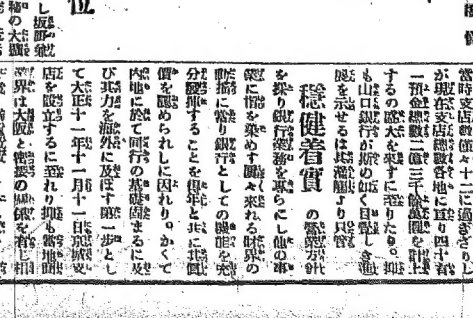 當時支店總僅々十二に過ぎざりし
が現在支店總數各地に亘り四十有
一預金總數二億三千餘萬圓を計上
するの盛大を來すに至りたり。抑
も山口銀行が斯の如く日醫し進
展を示せるは其濫觴より只管
穩健着實の營業方針
を採り銀行業務を專らにし他の事
業に指を染めず屢々來れる財界の
動搖に當り銀行としての機能を充
分發揮することを得年と共に其價
價を認められしに因れり。かくて
內地に於て同行の基礎固まるに及
び其力を海外に及ぼす第一步とし
て大正十一年十一月十一日京城支
店を設立するに至れり抑も當地商
業界は大阪と密接の關係を有し相
し坂
の大
位